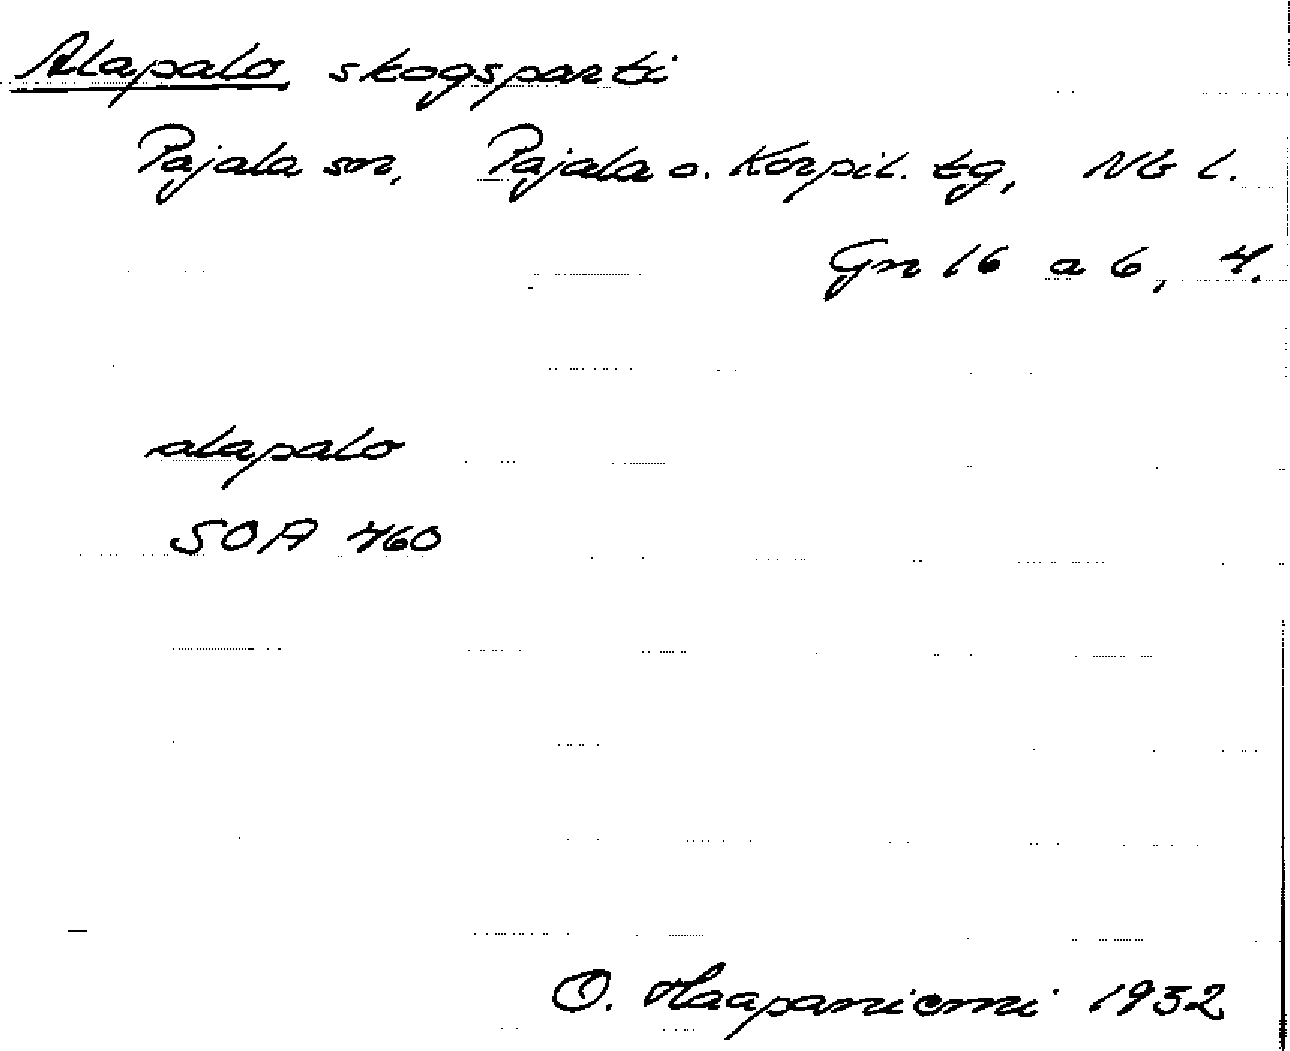 Alapalo skogsparti
Pajala sn, Pajala o. Korpil. tg, Nb l.
Gn 16 a 6, 4.
alapalo
SOA 460
O. Haapaniemi 1932